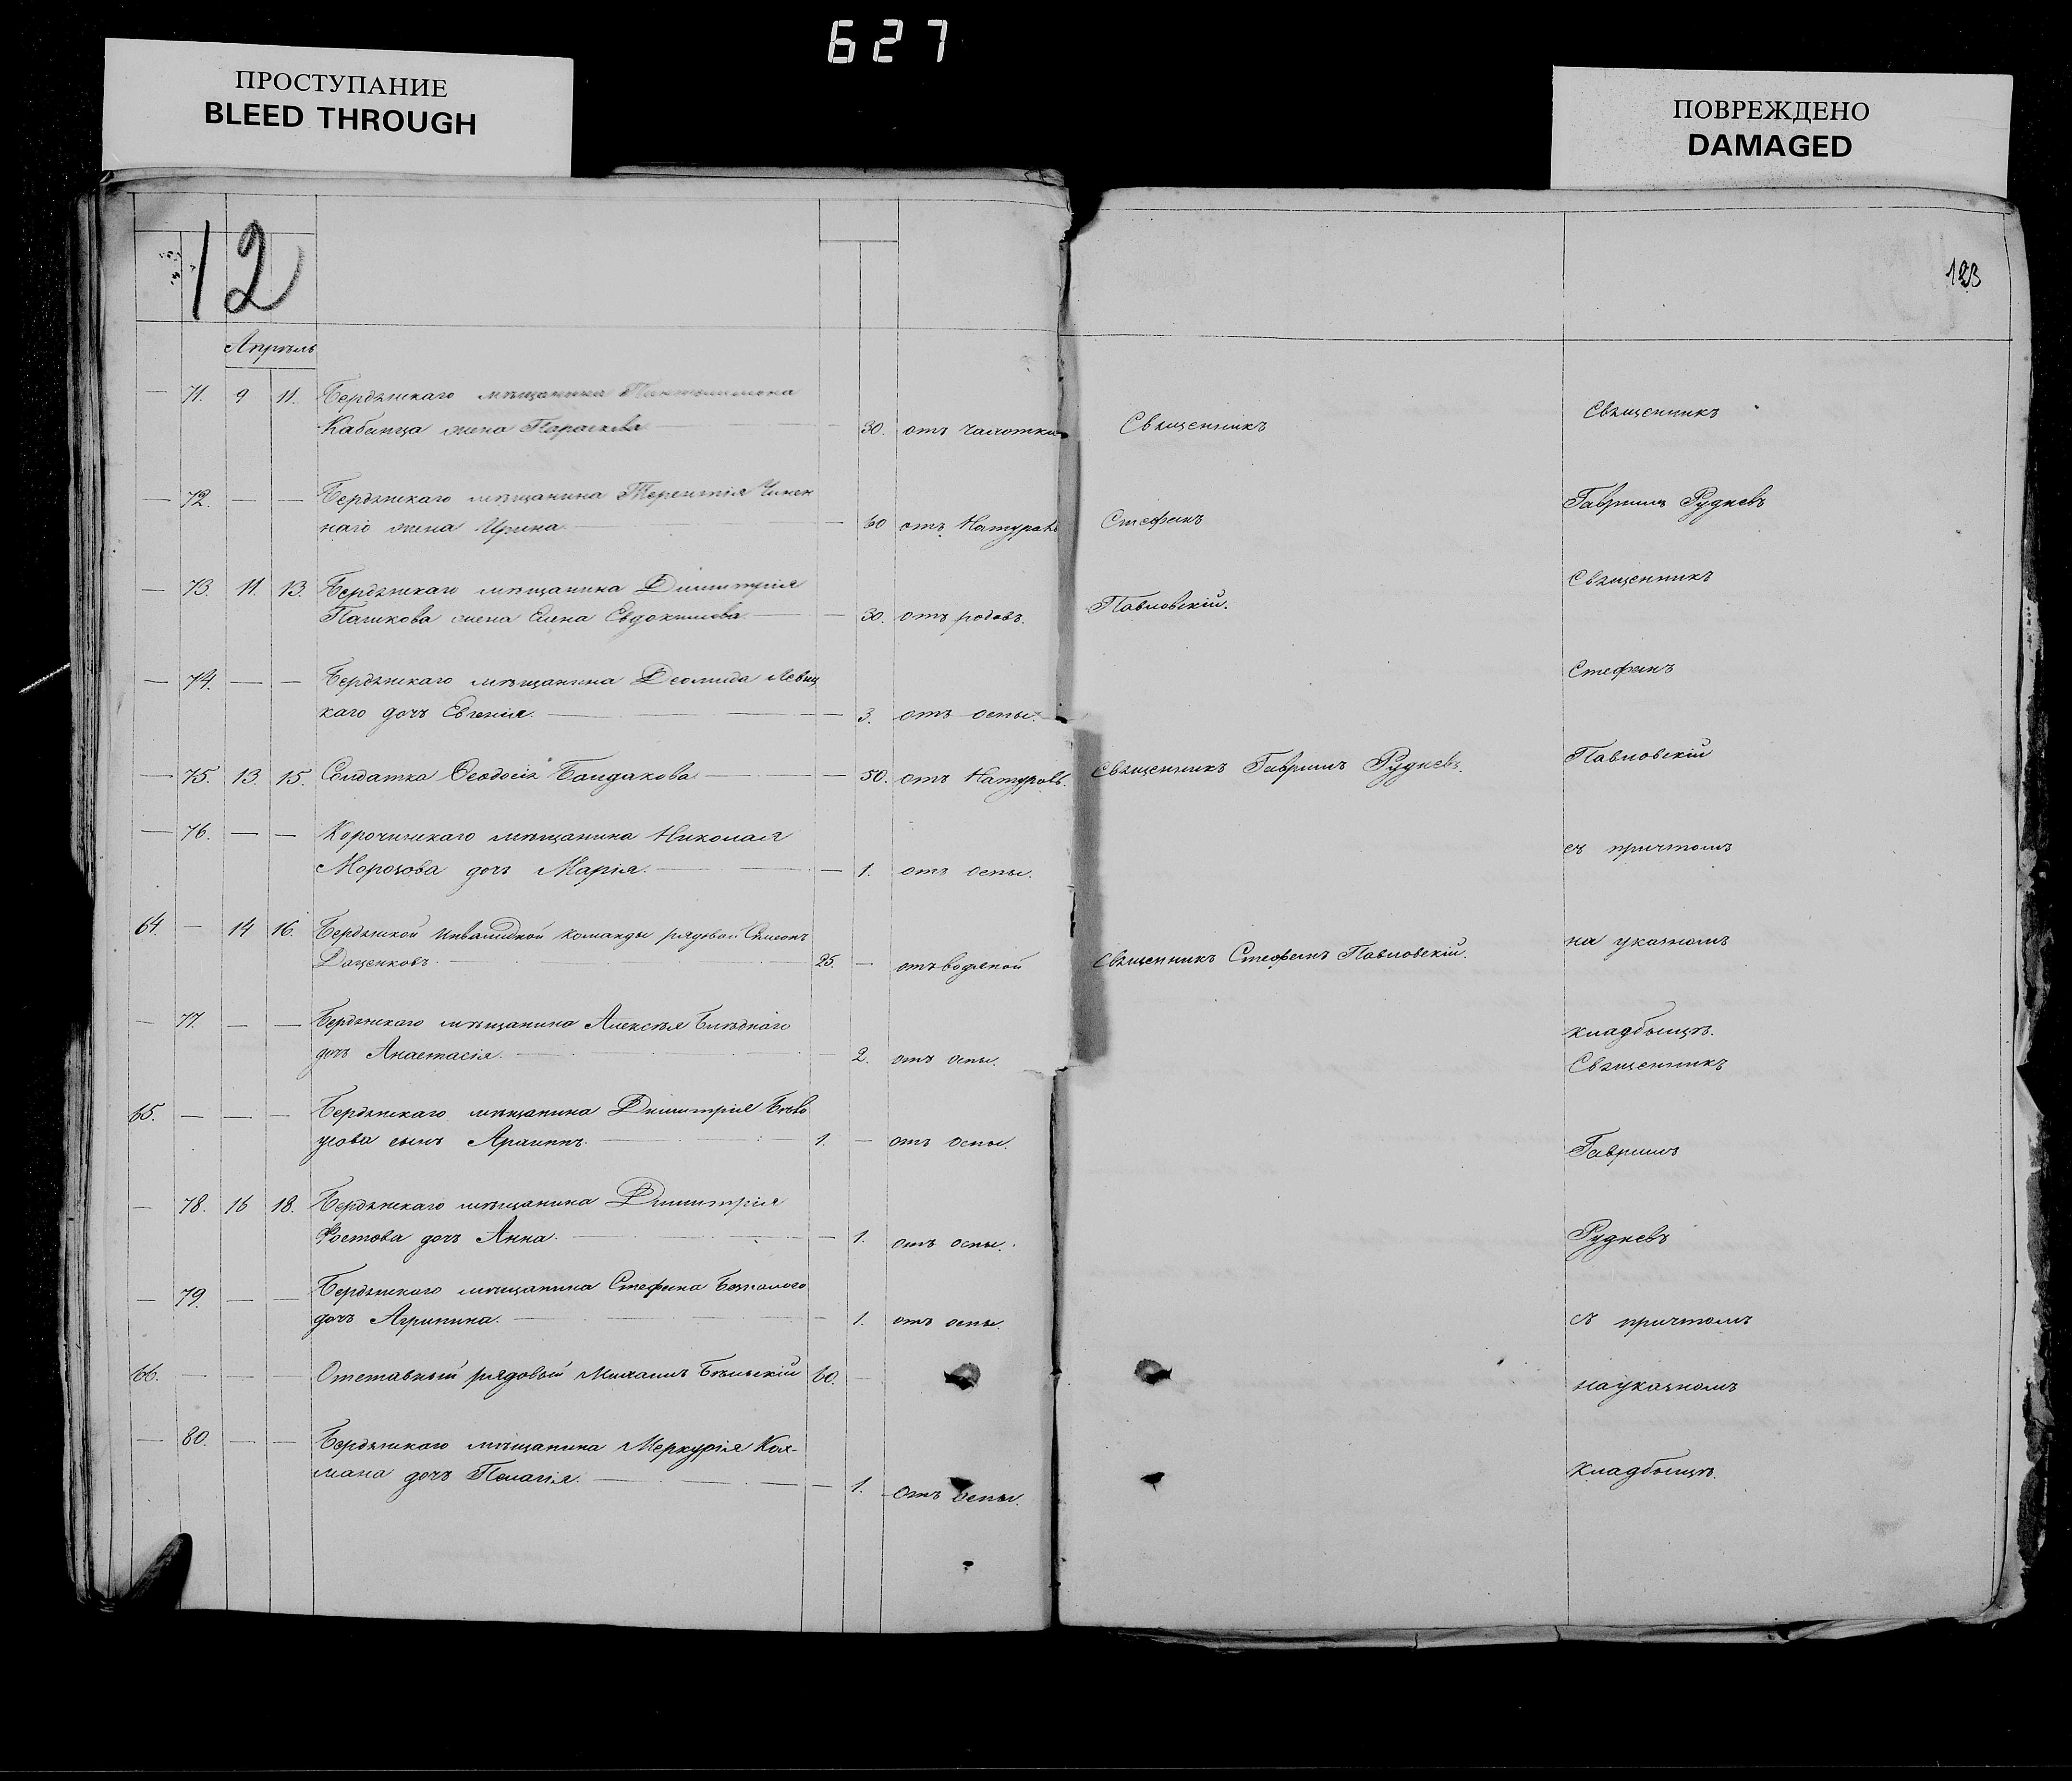 627
ПРОСТУПАНИЕ
BLEED THROUGH
ПОВРЕЖДЕНО
DAMAGED
12
123
Апрѣль
— 71. 9 11. Бердянскаго мѣщанина Пантелимона
Кабанца жена Параскева — 30. отъ чахотки
Священникъ
Священникъ
— 72. — — Бердянскаго мѣщанина Терентія
наго жена Ирина — 60 отъ Натураль
Стефанъ
Гавріилъ Рудневъ
— 73. 11. 13. Бердянскаго мѣщанина Димитрія
Пашкова жена Елена Евдокимова — 30. отъ родовъ.
Павловскій.
Священникъ
— 74. — — Бердянскаго мѣщанина Деомида Левиц
каго дочь Евгенія. — 3. отъ оспы.
Стефанъ
— 75. 13. 15. Солдатка Ѳеодосія — 50. отъ Натуралъ.
Священникъ Гавріилъ Рудневъ.
Павловскій
— 76. — — Корочинскаго мѣщанина Николая
Морозова дочь Марія. — 1. отъ оспы.
съ причтомъ
64. — 14 16. Бердянской Инвалидной команды рядовой Симеонъ
Даценковъ. 25. — отъ водяной
Священникъ Стефанъ Павловскій.
на указномъ
— 77. — — Бердянскаго мѣщанина Алексѣя Блѣднаго
дочь Анастасія. 2. отъ оспы.
кладбищѣ.
Священникъ
65. — — — Бердянскаго мѣщанина Димитрія Бѣло
усова сынъ Архипъ. 1. — отъ оспы.
Гавріилъ
— 78. 16 18. Бердянскаго мѣщанина Димитрія
Ростова дочь Анна. — 1. отъ оспы.
Рудневъ
— 79. — — Бердянскаго мѣщанина Стефана
дочь Агрипина. — 1. отъ оспы.
съ причтомъ
66. — — — Отставный рядовый Михаилъ Бѣльскій 60. —
на указномъ
— 80. — — Бердянскаго мѣщанина Меркурія Кол-
мана дочь Пелагія. — 1. отъ оспы.
кладбищѣ.